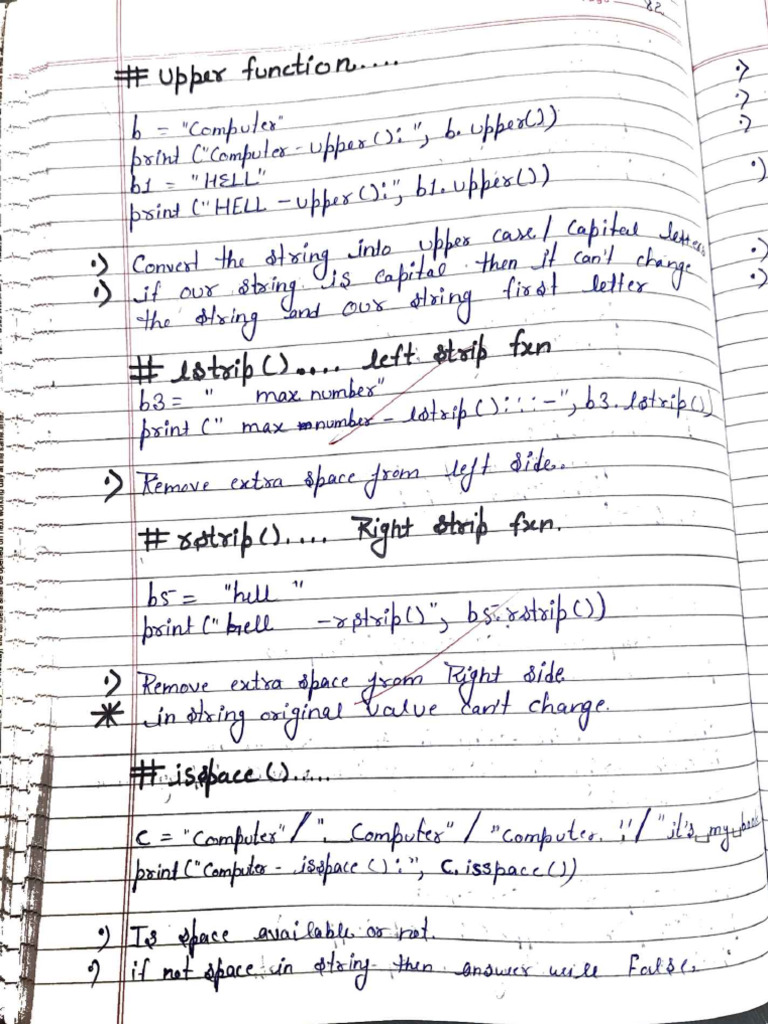 82.
# Upper function....
b = "Computer"
print ("Computer - upper():", b.upper())
b1 = "HELL"
print ("HELL - upper():", b1.upper())
·) Convert the string into upper case/ Capital letters
·) if our string is capital then it can't change
the string and our string first letter
# lstrip().... left strip fxn
b3 = "    max number"
print (" max number - lstrip():::-", b3.lstrip())
·) Remove extra space from left side..
# rstrip().... Right strip fxn.
b5 = "hell "
print ("hell    -rstrip()", b5.rstrip())
·) Remove extra space from Right side
* in string original value can't change.
# isspace()....
c = "Computer" / ". Computer" / "Computer. " / "it's my book
print ("Computer - isspace():", c.isspace())
·) Is space available or not.
·) if not space in string then answer will False.